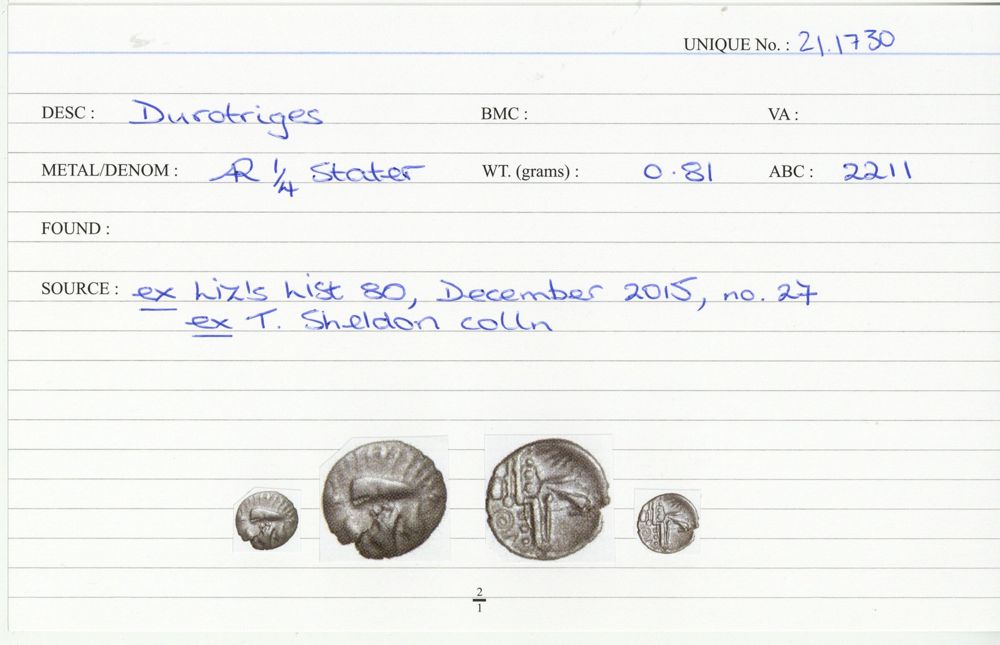 UNIQUE No. : 21.1730
DESC : Durotriges BMC : VA :
METAL/DENOM : AR 1/4 Stater WT. (grams) : 0.81 ABC : 2211
FOUND :
SOURCE : ex Liz's List 80, December 2015, no. 27
ex T. Sheldon colln
2
1